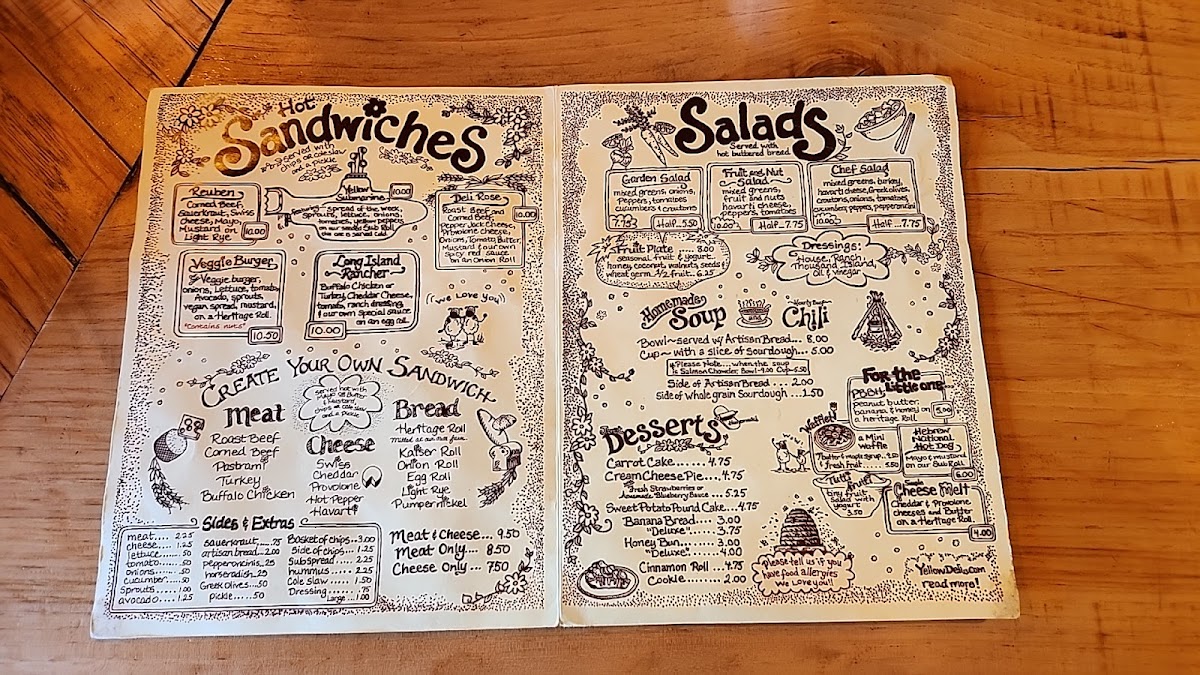 Hot
Sandwiches
served with
chips or coleslaw
and a pickle
Reuben
Corned Beef,
Sauerkraut, Swiss
Cheese, Mayo,
Mustard on
Light Rye
10.00
Yellow
Submarine
10.00
spread of the week
sprouts, lettuce, onions,
tomatoes, yellow peppers
on our seeded Sub Roll
this one is served cold
Deli Rose
Roast Beef and
Corned Beef,
Pepper Jack Cheese,
Provolone Cheese,
Onions, Tomato, Butter,
Mustard & our own
spicy red sauce
on an Onion Roll
10.00
Veggie Burger
Veggie burger,
onions, Lettuce, tomato
Avocado, sprouts,
vegan spread, mustard,
on a Heritage Roll.
*Contains nuts*
10.50
Long Island
Rancher
Buffalo Chicken or
Turkey, Cheddar Cheese,
tomato, ranch dressing
& our own special sauce
on an egg roll.
10.00
We Love You
Create Your Own Sandwich
served hot with
Mayo or Butter
& Mustard,
chips or cole slaw
and a pickle
Meat
Roast Beef
Corned Beef
Pastrami
Turkey
Buffalo Chicken
Cheese
Swiss
Cheddar
Provolone
Hot Pepper
Havarti
Bread
Heritage Roll
Milled at our own farm
Kaiser Roll
Onion Roll
Egg Roll
Light Rye
Pumpernickel
Sides & Extras
meat.... 2.25
cheese.... 1.25
lettuce.... .50
tomato.... .50
onions.... .50
cucumber.... .50
Sprouts.... 1.00
avocado.... 1.25
sauerkraut....75
artisan bread...2.00
pepperoncinis..25
horseradish..25
Greek Olives....50
pickle.....50
Basket of chips..3.00
Side of chips... 1.25
Sub spread..... 2.25
hummus...... 2.25
Cole Slaw..... 1.50
Dressing..... .75
Large 1.00
Meat & Cheese... 9.50
Meat Only... 8.50
Cheese Only... 7.50
Salads
Served with
hot buttered bread
Garden Salad
mixed greens, onions,
Peppers, tomatoes
cucumbers & croutons
7.75
Half...5.50
Fruit and Nut
Salad
mixed greens,
fruit and nuts
havarti cheese,
peppers, tomatoes
10.00
Half...7.75
Chef Salad
mixed greens, turkey,
havarti cheese, Greek olives,
croutons, onions, tomatoes,
cucumbers, peppers, pepperoncini
10.00
Half...7.75
Fruit Plate...... 8.00
seasonal fruit & yogurt,
honey, coconut, walnuts, seeds &
wheat germ. 1/2 fruit.. 6.25
Dressings:
House, Ranch,
Thousand Island,
Oil & vinegar
Homemade
Soup
Hearty Beef
Chili
Bowl~served w/ Artisan Bread... 8.00
Cup~with a slice of Sourdough... 5.00
*Please Note... when the soup
is Salmon Chowder, Bowl-9.00 Cup-5.50
Side of Artisan Bread .... 2.00
Side of whole grain Sourdough ....1.50
For the
little ones
PBBH
peanut butter,
banana, & honey on
a heritage Roll
5.00
Waffle
a Mini
waffle
w/ butter & maple syrup..
w/ fresh fruit..... 5.50
Hebrew
National
Hot Dog
Mayo & mustard
on our Sub Roll
6.00
Tutti Frutti
tiny fruit
Salad with
yogurt
3.50
Simple
Cheese Melt
Cheddar & Provolone
cheeses and Butter
on a Heritage Roll.
4.00
Desserts
Carrot Cake....... 4.75
Cream Cheese Pie....4.75
w/ Fresh Strawberries or
Homemade Blueberry Sauce ... 5.25
Sweet Potato Pound Cake....4.75
Banana Bread.... 3.00
"Deluxe".... 3.75
Honey Bun........ 3.00
"Deluxe".... 4.00
Cinnamon Roll .... 4.75
Cookie........ 2.00
Please tell us if you
have food allergies
We Love you!
YellowDeli.com
read more!